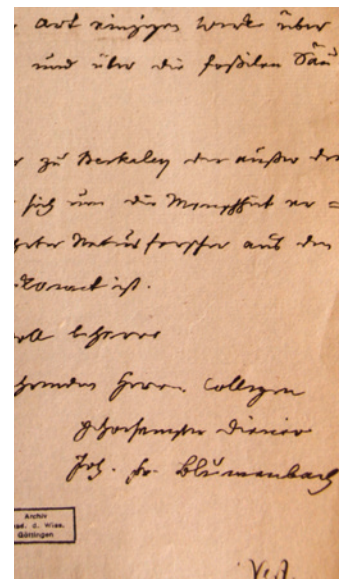 art einzigen Werk über
und über die foßilen Säu
zu Berkeley der außer de
sich um die Menschheit ver=
ter Naturforscher aus den
bekannt ist.
voll Ihrer
Herren Collegen
gehorsamster Diener
Joh. Fr. Blumenbach
Archiv
Akad. d. Wiss.
Göttingen